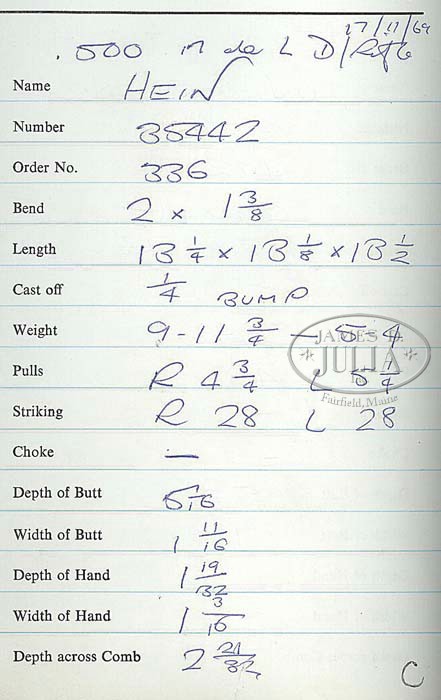 27/11/69
.500 m de L D/Rifle
Name HEIN
Number 35442
Order No. 336
Bend 2 x 1 3/8
Length 13 1/4 x 13 1/8 x 13 1/2
Cast off 1/4 BUMP
Weight 9-11 3/4 - 5-4
Pulls R 4 3/4 L 5 1/4
Striking R 28 L 28
Choke —
Depth of Butt 5 1/16
Width of Butt 1 11/16
Depth of Hand 1 19/32
Width of Hand 1 3/16
Depth across Comb 2 21/32
C
JAMES D.
JULIA
Fairfield, Maine